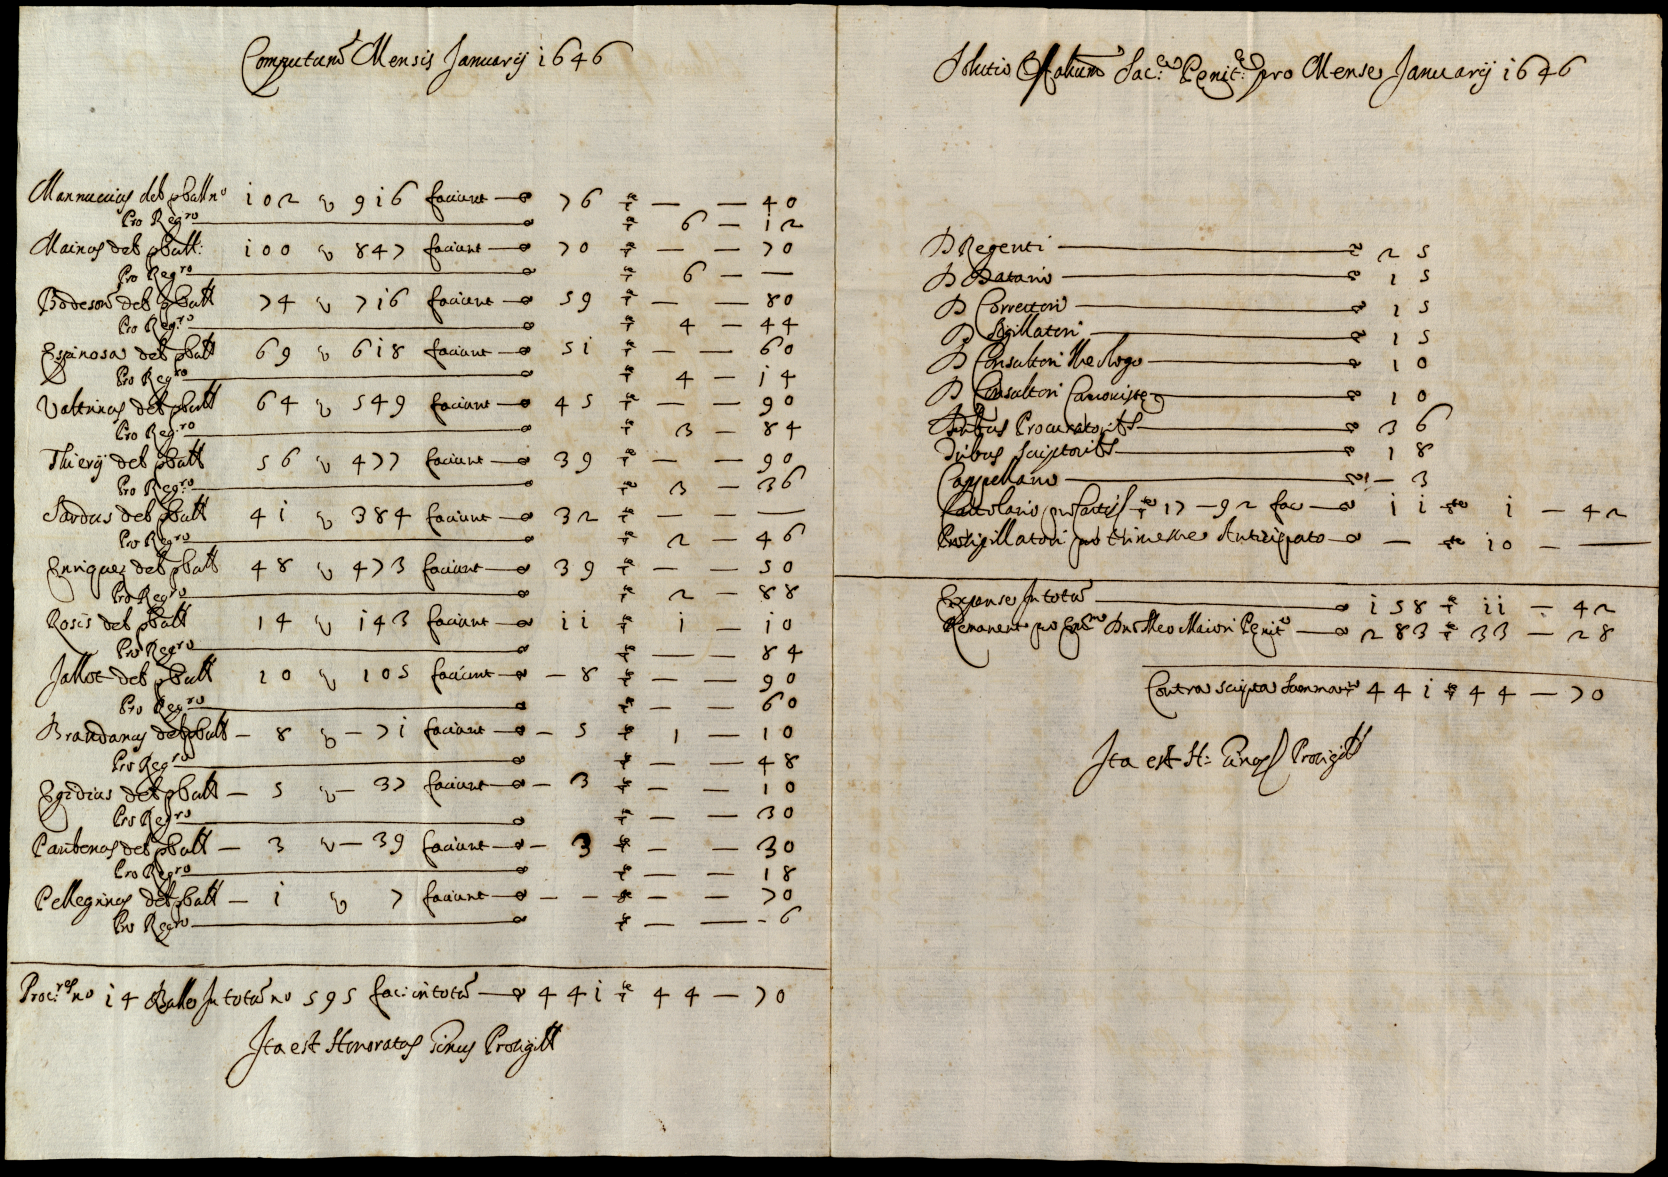 Computum Mensis Januarij 1646
Mannucius deb. pbull. no 102 v 916 faciunt 76 — — 40
Pro Regro 6 — 12
Mainas deb. pbull: 100 v 847 faciunt 70 — — 70
Pro Regro 6 — —
Bodeson deb. pbull 74 v 716 faciunt 59 — — 80
Pro Regro 4 — 44
Espinosa deb. pbull 69 v 618 faciunt 51 — — 60
Pro Regro 4 — 14
Valtrinus deb. pbull 64 v 549 faciunt 45 — — 90
Pro Regro 3 — 84
Thierij deb. pbull 56 v 477 faciunt 39 — — 90
Pro Regro 3 — 36
Sardus deb. pbull 41 v 384 faciunt 32 — — —
Pro Regro 2 — 46
Enriquez deb. pbull 48 v 473 faciunt 39 — — 50
Pro Regro 2 — 88
Rosis deb. pbull 14 v 143 faciunt 11 1 — 10
Pro Regro — — 84
Jallot deb. pbull 10 v 105 faciunt — 8 — — 90
Pro Regro — — 60
Brandanus deb. pbull — 8 v — 71 faciunt — 5 1 — 10
Pro Regro — — 48
Egidius deb. pbull — 5 v — 37 faciunt — 3 — — 10
Pro Regro — — 30
deb. pbull — 3 v — 39 faciunt — 3 — — 30
Pro Regro — — 18
Pellegrinus deb. pbull — 1 v 7 faciunt — — — — 70
Pro Regro — — - 6
Proc.res no 14 Bulle In totum no 595 fac: in totum 441 44 — 70
Ita est Honoratus Pinus Prosigill
Solutio Offalium Sac: Penit: pro Mense Januarij 1646
D Regenti 25
D Datario 15
D Correctori 15
D Sigillatori 15
D Consultori Theologo 10
D Consultori Canoniste 10
Procuratoribus 36
Tribus Scriptoribus 18
Cappellano — 3
17 — 92 fac 11 1 — 42
Prosigillatori pro trimestre Anticipato — 10 — —
Expense In totum 158 11 — 42
Remanent pro Emmo Dno Meo Maiori Penitro 283 33 — 28
Contrascripta Summa 441 44 — 70
Ita est H: Pinus Prosigill